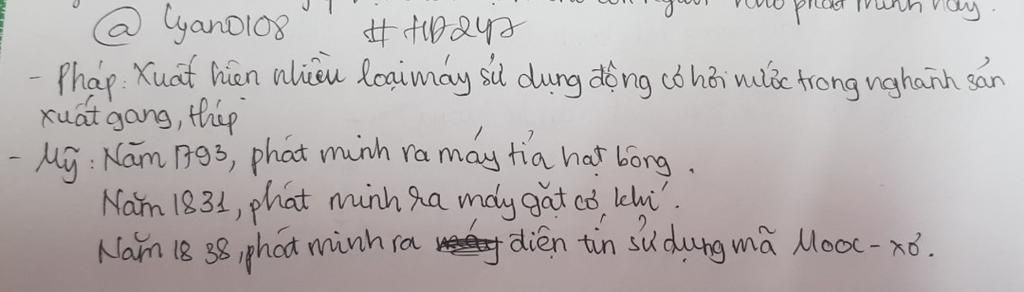 phát minh này.
@ Cyan0108 #HD247
- Pháp: Xuất hiện nhiều loại máy sử dụng động cơ hơi nước trong nghành sản
xuất gang, thép
- Mỹ: Năm 1793, phát minh ra máy tỉa hạt bông.
Năm 1831, phát minh ra máy gặt cơ khí.
Năm 1838, phát minh ra điện tín sử dụng mã Mooc-xơ.